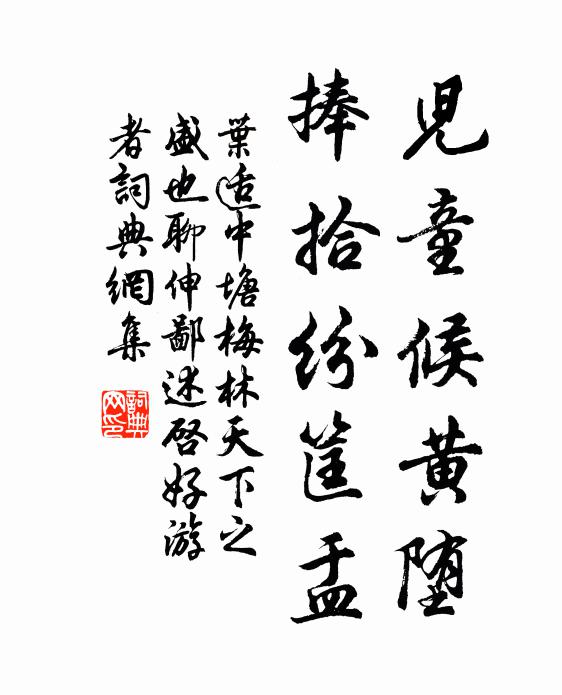 児童候黄堕
捧拾纷筐盂
葉适中塘梅林天下之
盛也聊伸鄙述启好游
者詞典網集
詞典
网印